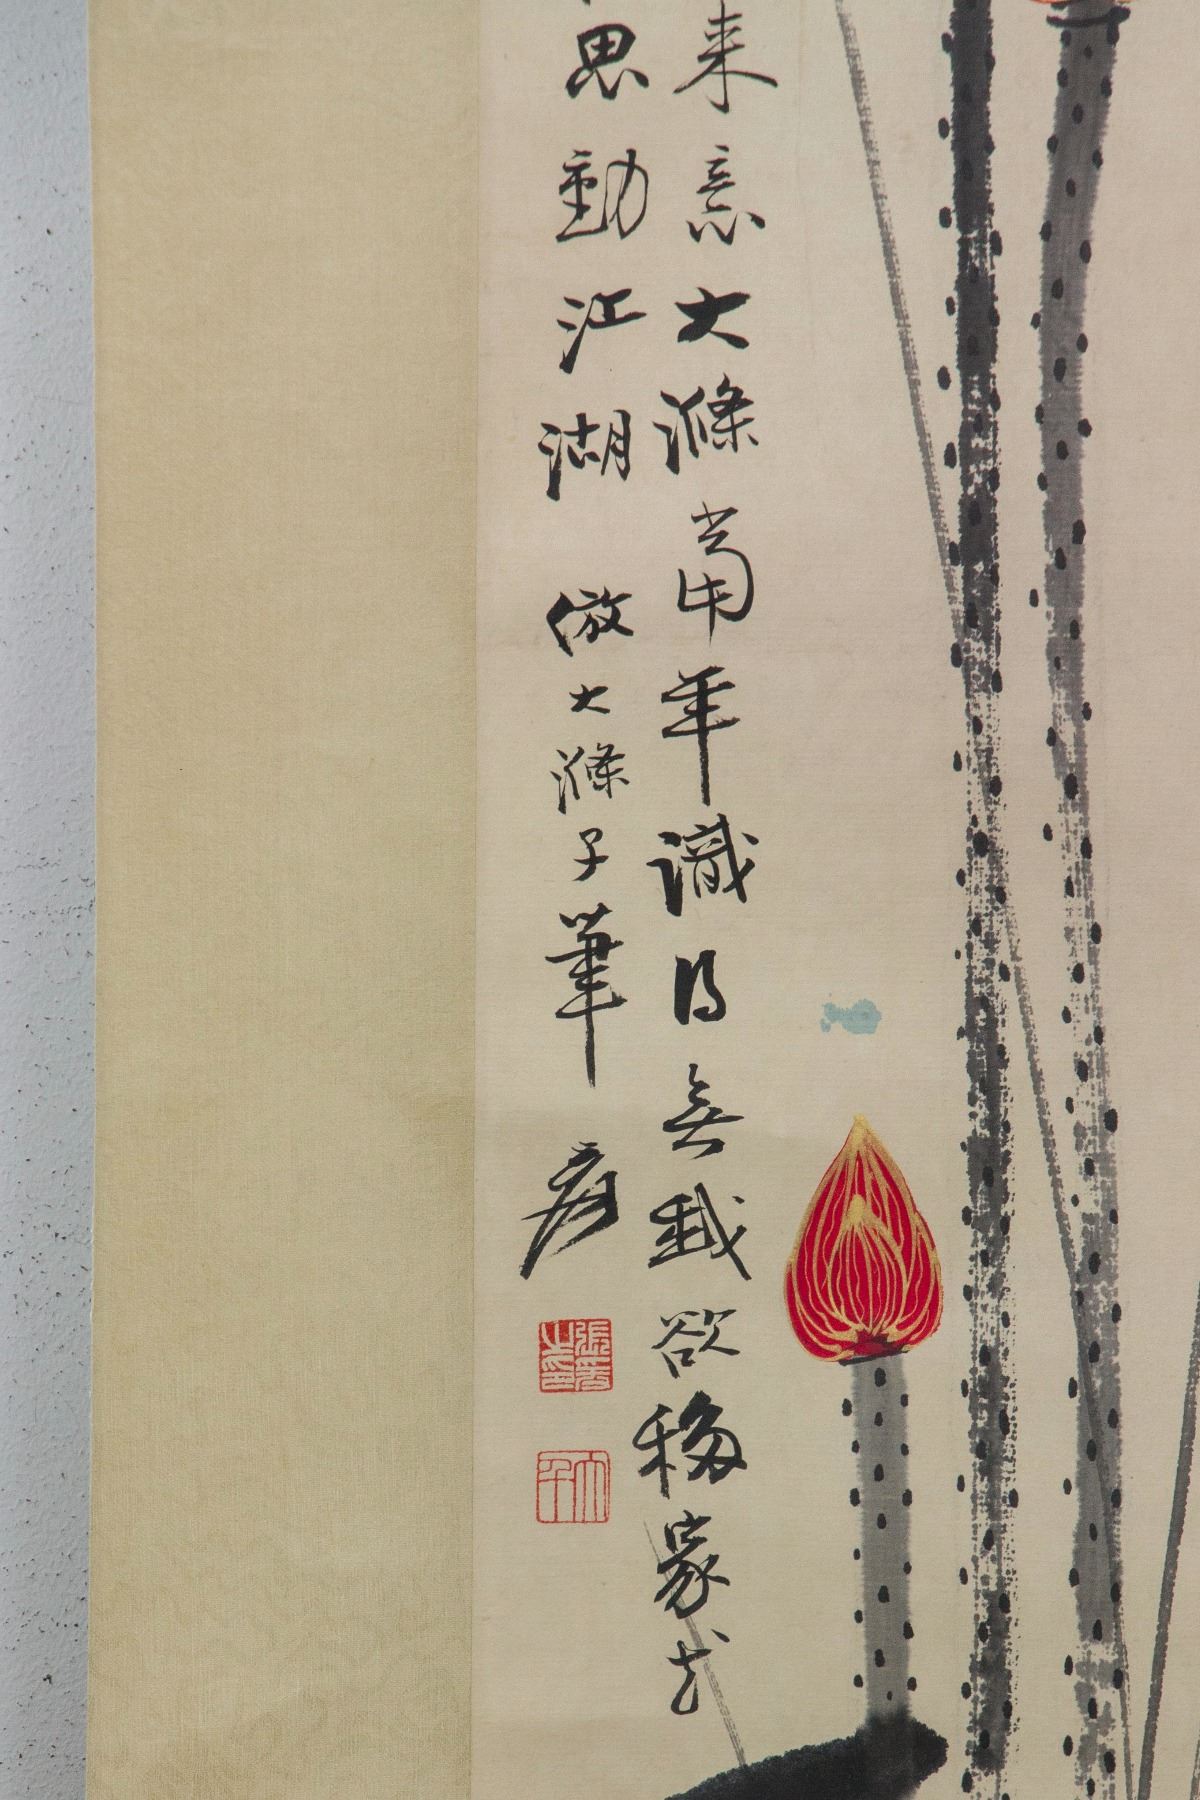 来意大滌當年識得無我欲移家去
思動江湖 倣大滌子筆 爰
張爰之印
大千